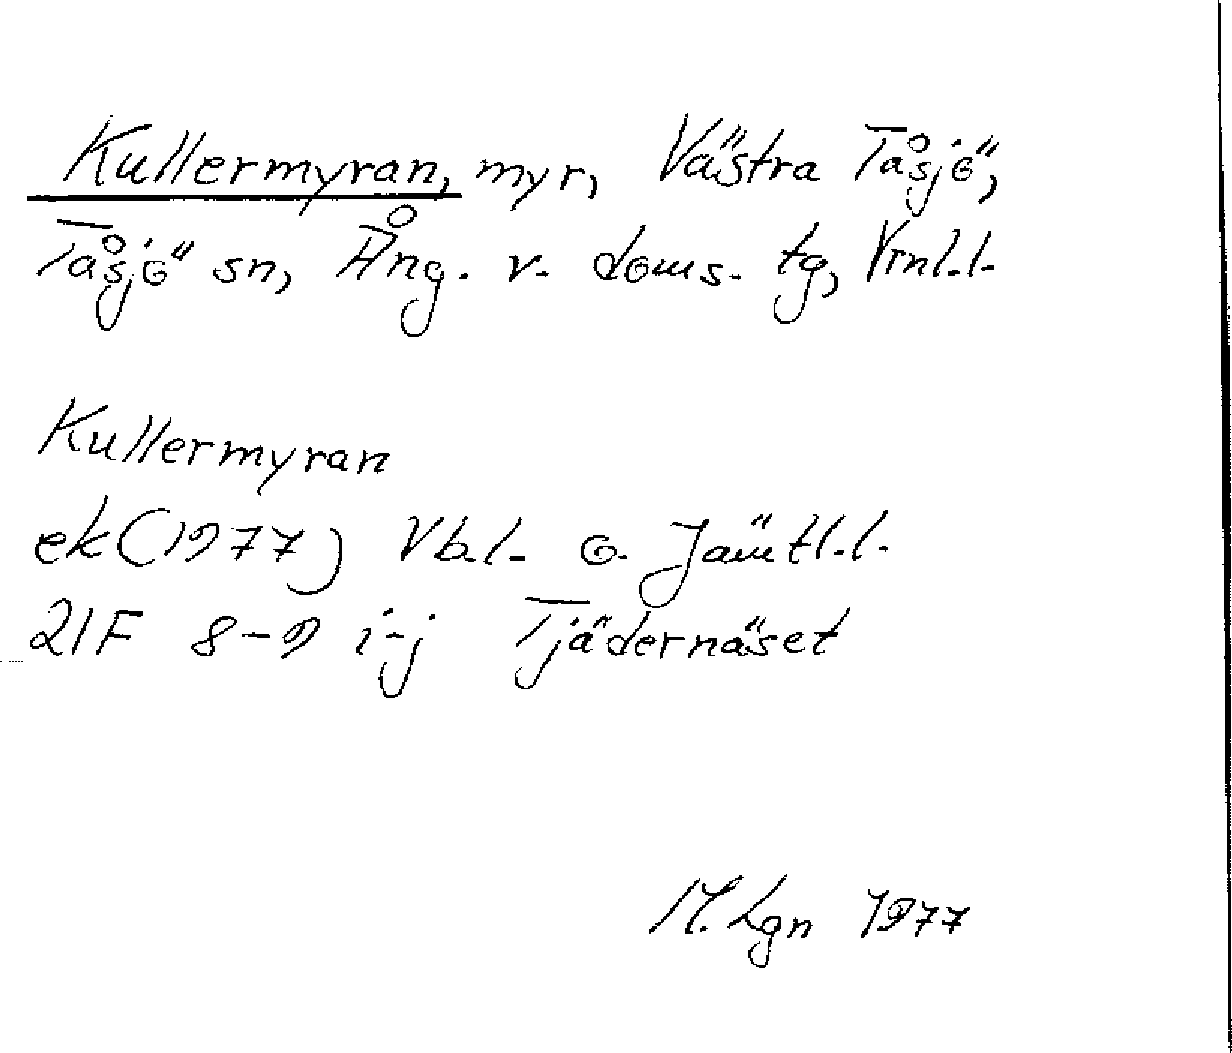 Kullermyran, myr, Västra Tåsjö,
Tåsjö sn, Ång. v. doms. tg, Vrnl.l.
Kullermyran
ek (1977) Vb.l. o. Jämtl.l.
21F 8-9 i-j Tjädernäset
M. Lgn 1977